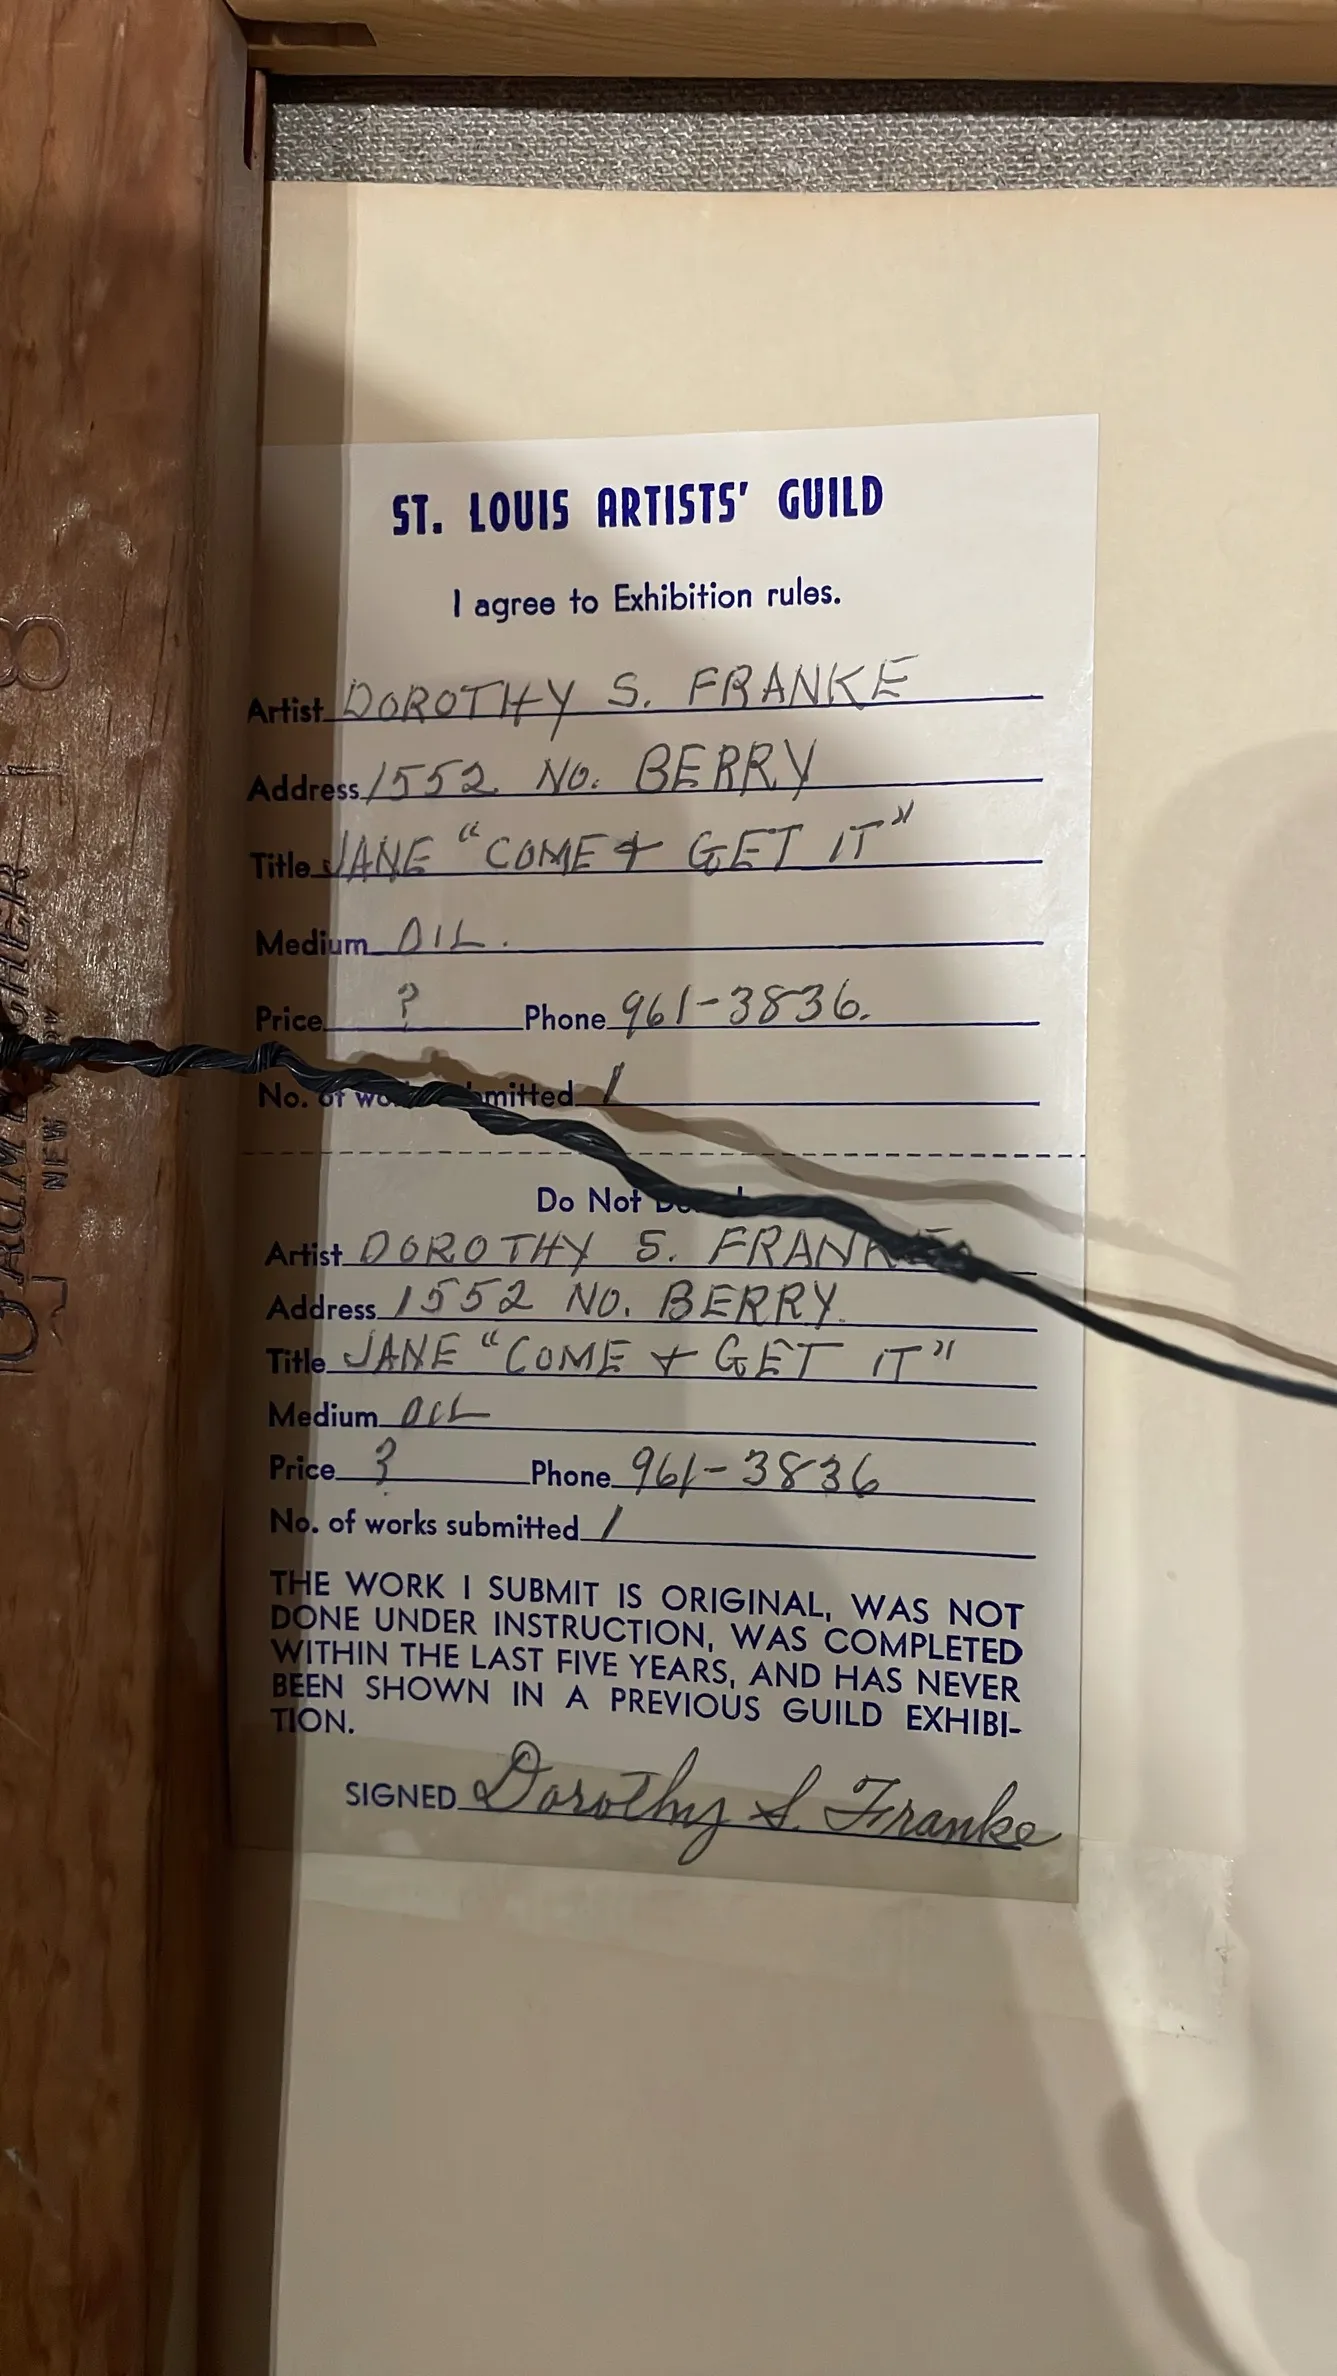 ST. LOUIS ARTISTS' GUILD
I agree to Exhibition rules.
Artist DOROTHY S. FRANKE
Address 1552 NO. BERRY
Title JANE "COME & GET IT"
Medium OIL.
Price ? Phone 961-3836.
No. of submitted 1
Do Not
Artist DOROTHY S. FRANKE
Address 1552 NO. BERRY.
Title JANE "COME & GET IT"
Medium OIL
Price ? Phone 961-3836
No. of works submitted 1
THE WORK I SUBMIT IS ORIGINAL, WAS NOT
DONE UNDER INSTRUCTION, WAS COMPLETED
WITHIN THE LAST FIVE YEARS, AND HAS NEVER
BEEN SHOWN IN A PREVIOUS GUILD EXHIBI-
TION.
SIGNED Dorothy S. Franke
8
NEW YORK